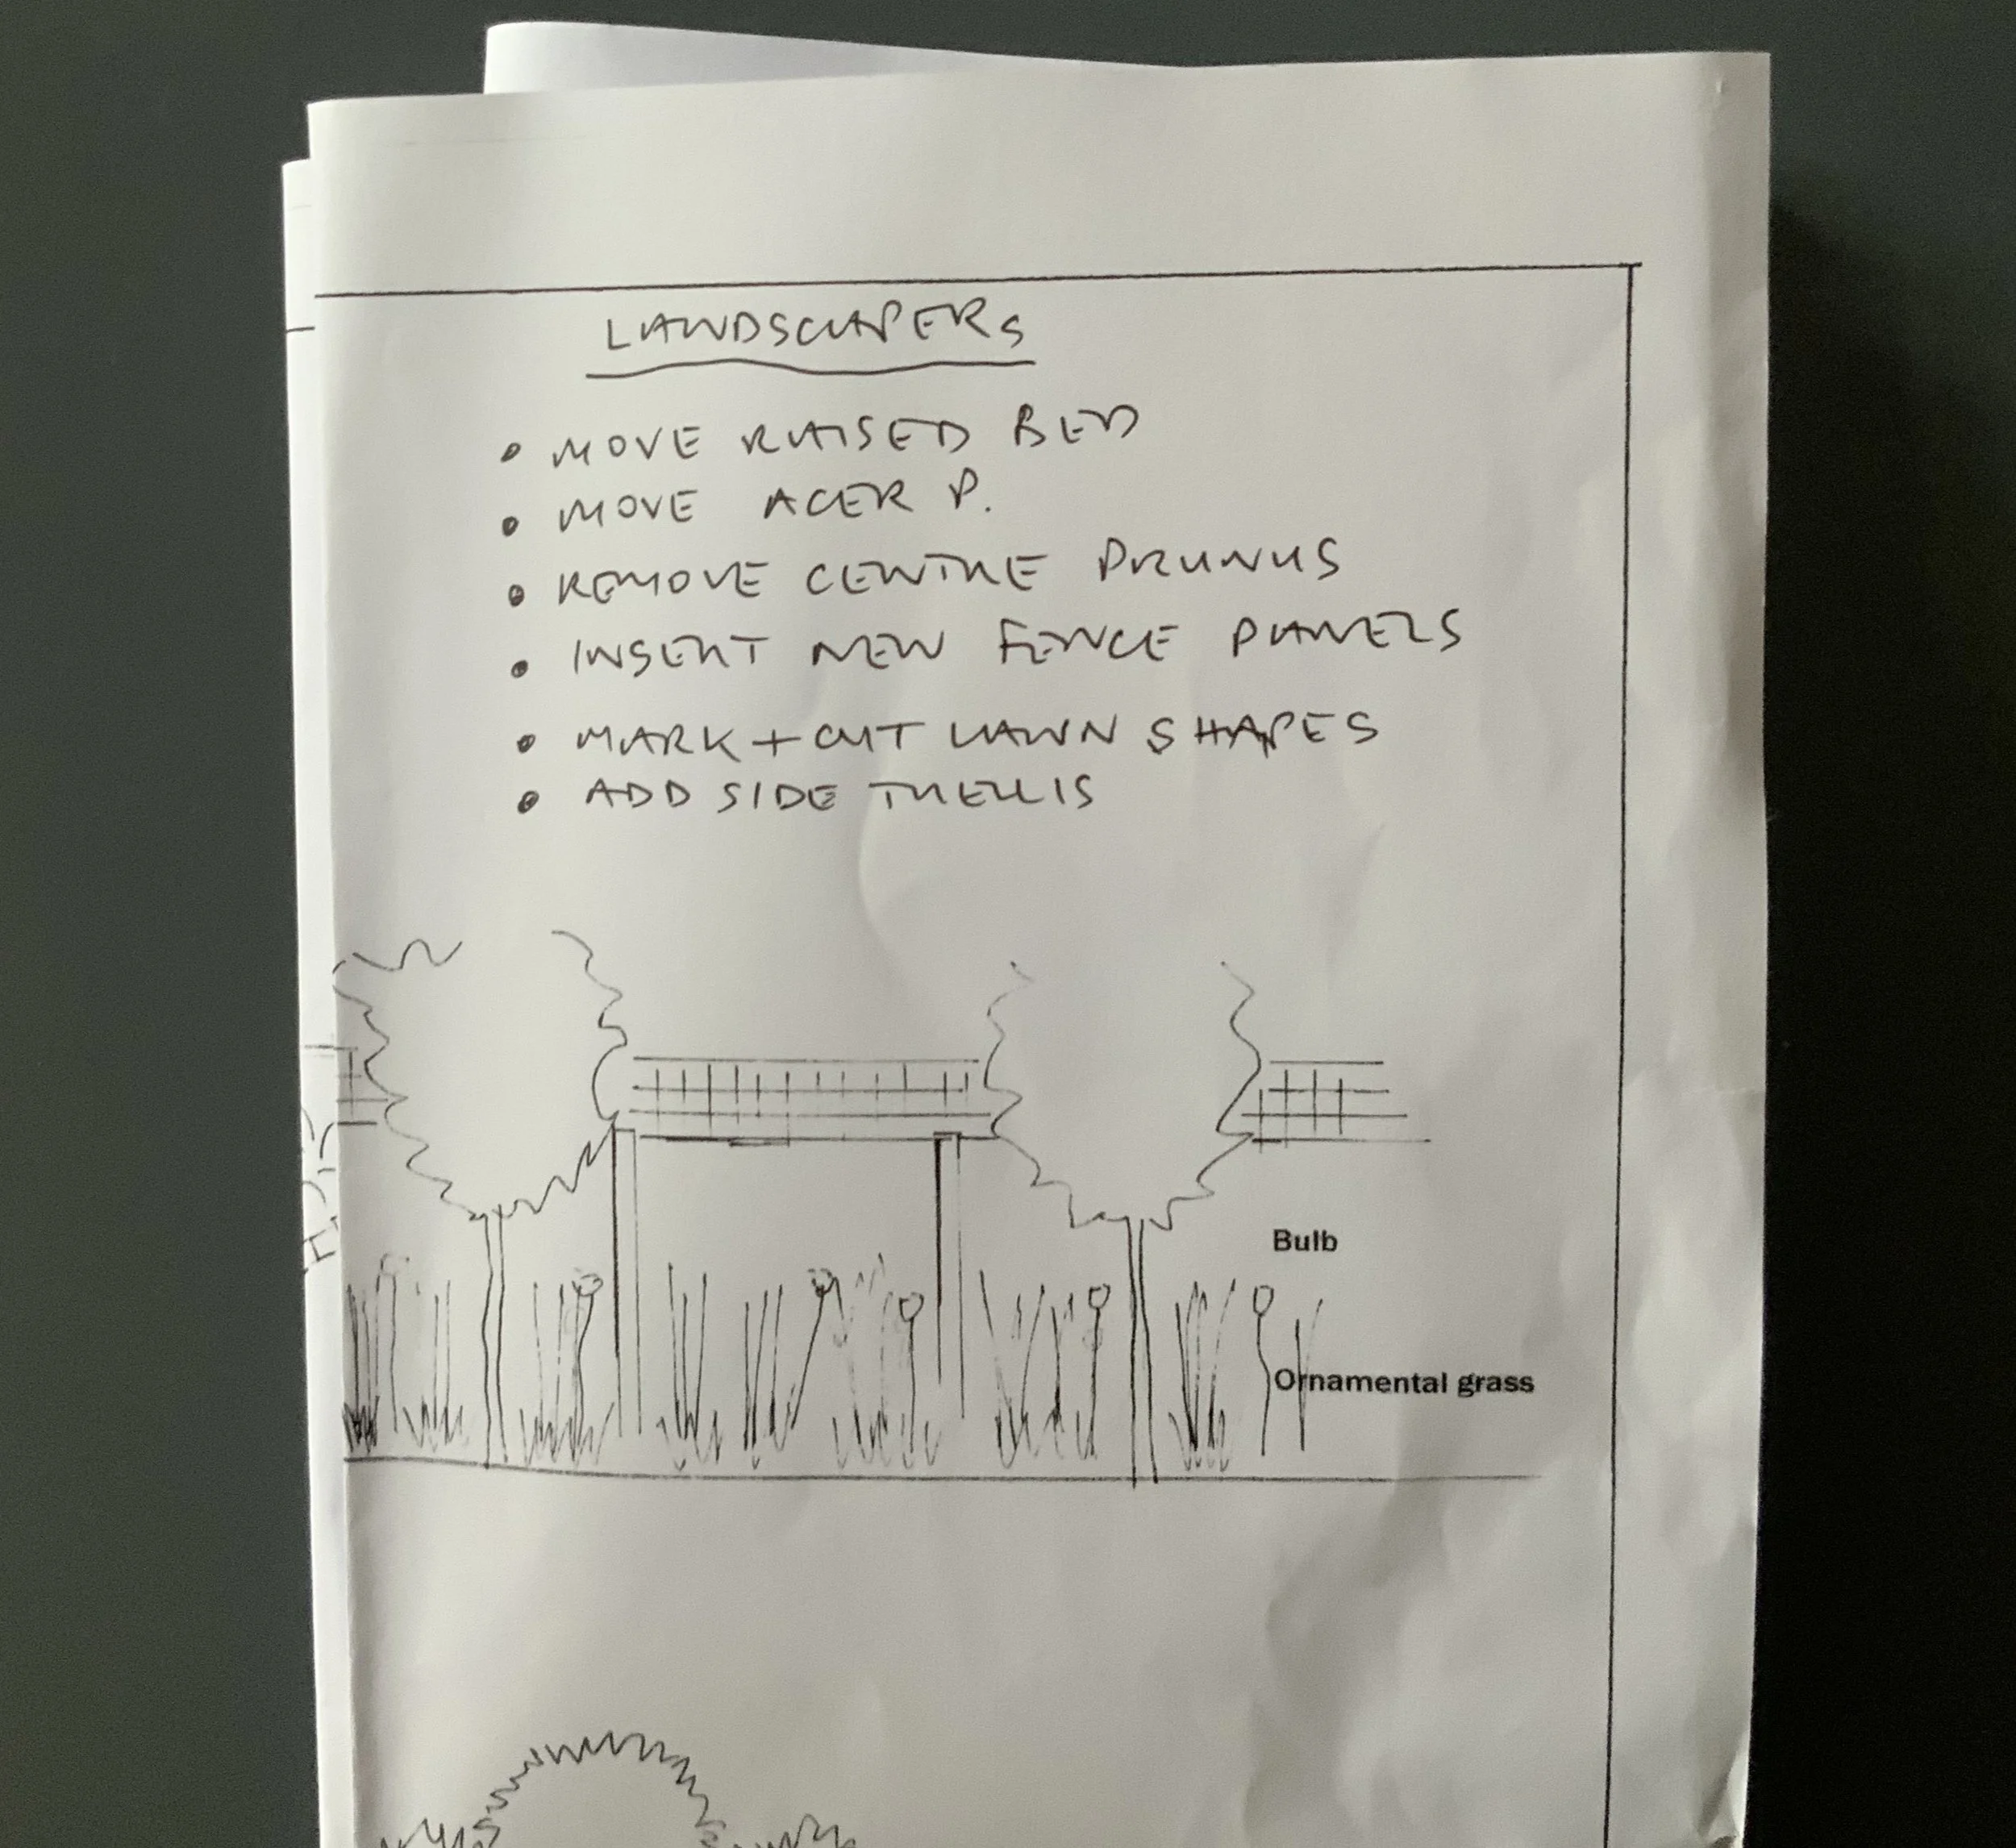 LANDSCAPERS
• MOVE RAISED BED
• MOVE ACER P.
• REMOVE CENTRE PRUNUS
• INSERT NEW FENCE PANELS
• MARK + CUT LAWN SHAPES
• ADD SIDE TRELLIS
Bulb
Ornamental grass